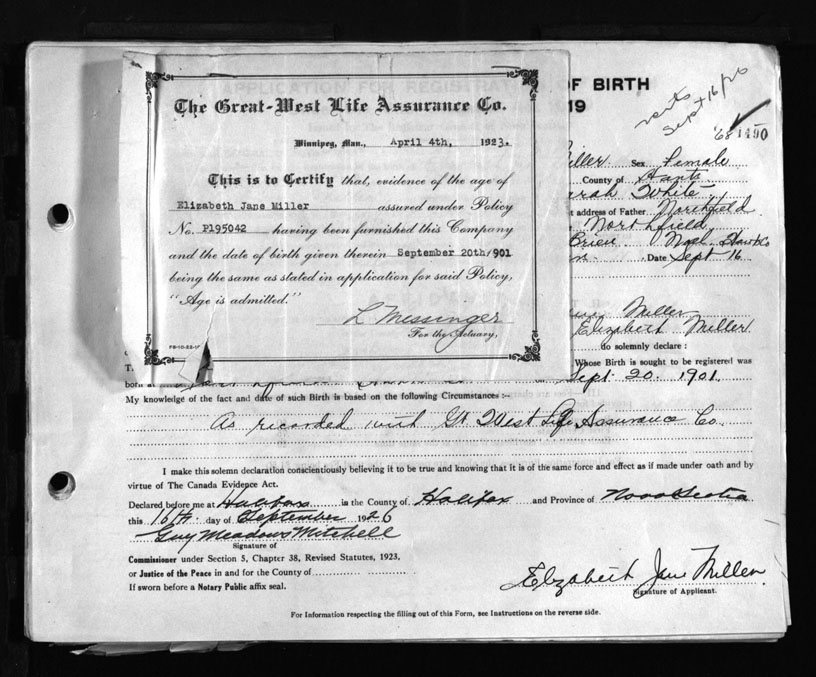 The Great-West Life Assurance Co.
Winnipeg, Man., April 4th, 1923.
This is to Certify that, evidence of the age of
Elizabeth Jane Miller assured under Policy
No. P195042 having been furnished this Company
and the date of birth given therein September 20th/901
being the same as stated in application for said Policy,
"Age is admitted."
L Messinger
For the Actuary,
OF BIRTH
19
Sept 16/26
1490
Miller Sex Female
County of Hants
Sarah White
t address of Father Northfield
Northfield
Brien Noel Hants Co
Date Sept 16
Miller
Elizabeth Miller
do solemnly declare :
Whose Birth is sought to be registered was
born at Sept. 20. 1901.
My knowledge of the fact and date of such Birth is based on the following Circumstances :-
As recorded with Gt West Life Assurance Co.
I make this solemn declaration conscientiously believing it to be true and knowing that it is of the same force and effect as if made under oath and by
virtue of The Canada Evidence Act.
Declared before me at Halifax in the County of Halifax and Province of Nova Scotia
this 16th day of September 1926
Guy Meadows Mitchell
Signature of
Commissioner under Section 5, Chapter 38, Revised Statutes, 1923.
or Justice of the Peace in and for the County of
If sworn before a Notary Public affix seal.
Elizabeth Jane Miller
Signature of Applicant.
For Information respecting the filling out of this Form, see Instructions on the reverse side.